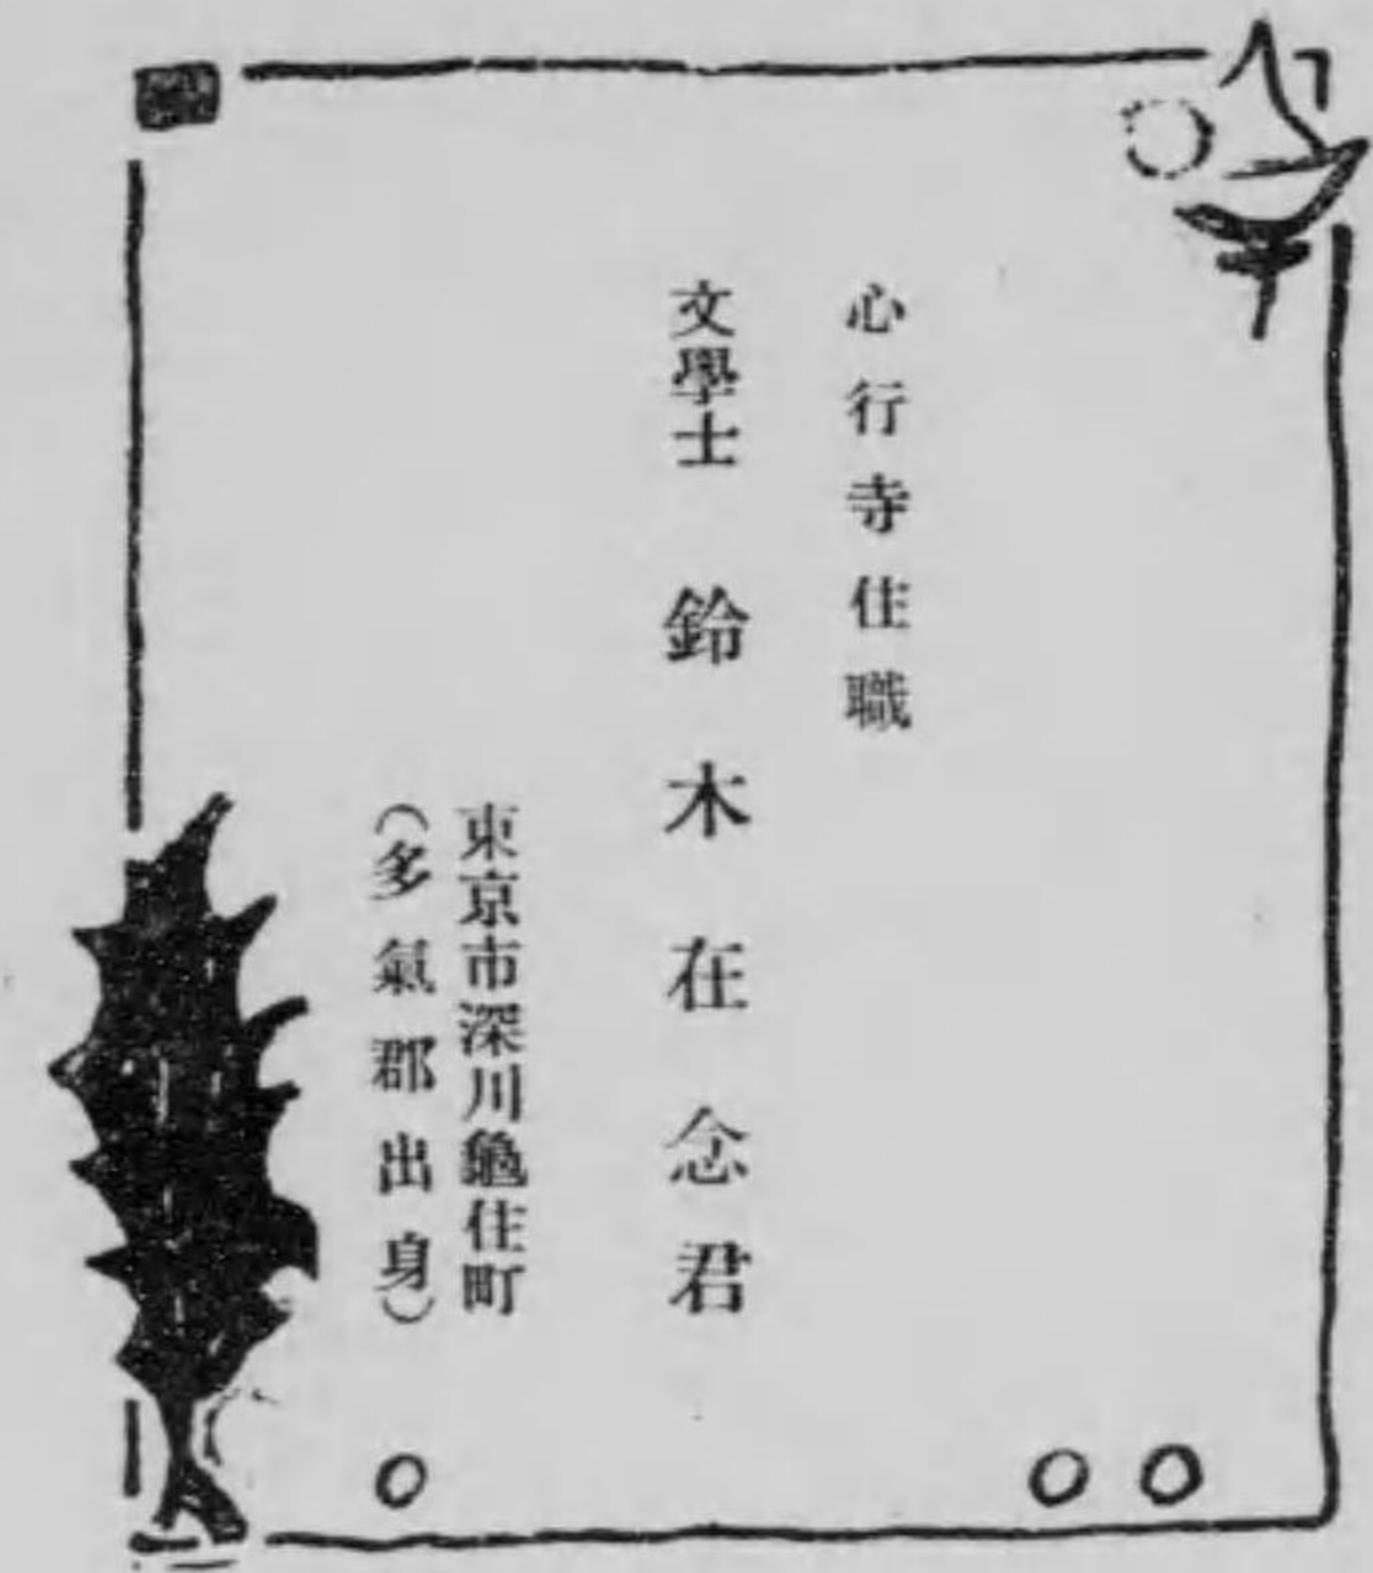 心行寺住職
文學士 鈴木在念君
東京市深川龜住町
（多氣郡出身）